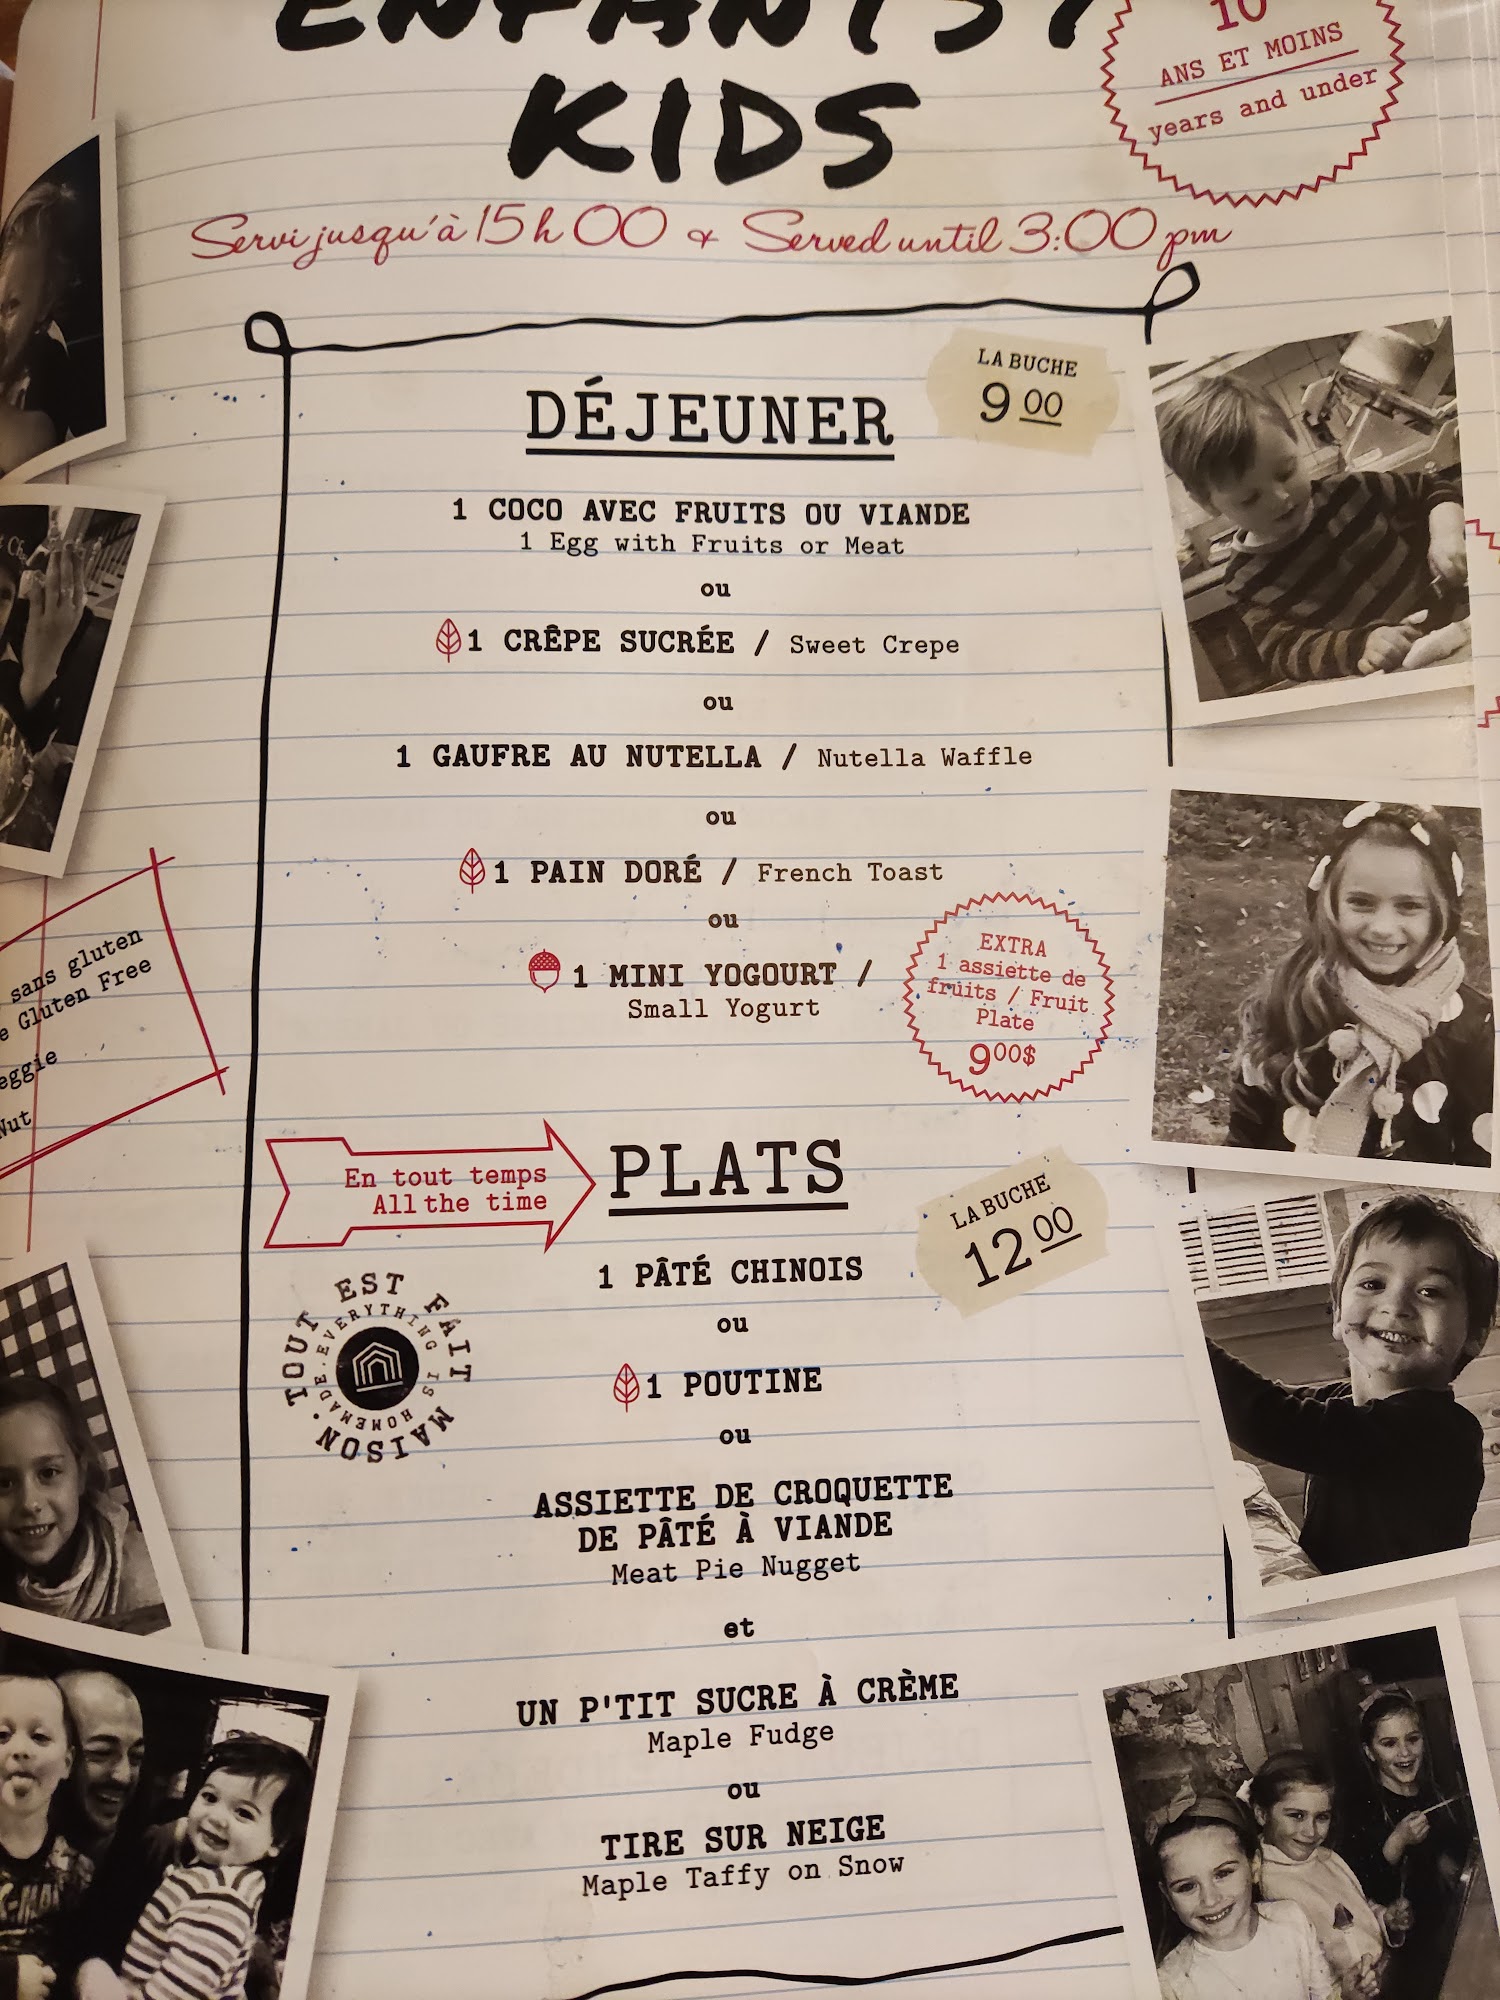 ENFANTS/
KIDS
10
ANS ET MOINS
years and under
Servi jusqu'à 15 h 00 & Served until 3:00 pm
LA BUCHE
9 00
DÉJEUNER
1 COCO AVEC FRUITS OU VIANDE
1 Egg with Fruits or Meat
ou
1 CRÊPE SUCRÉE / Sweet Crepe
ou
1 GAUFRE AU NUTELLA / Nutella Waffle
ou
1 PAIN DORÉ / French Toast
ou
1 MINI YOGOURT /
Small Yogurt
EXTRA
1 assiette de
fruits / Fruit
Plate
9 00$
sans gluten
Gluten Free
En tout temps
All the time
PLATS
LA BUCHE
12 00
1 PÂTÉ CHINOIS
ou
1 POUTINE
ou
ASSIETTE DE CROQUETTE
DE PÂTÉ À VIANDE
Meat Pie Nugget
et
UN P'TIT SUCRE À CRÈME
Maple Fudge
ou
TIRE SUR NEIGE
Maple Taffy on Snow
TOUT EST FAIT MAISON •
EVERYTHING IS HOMEMADE •